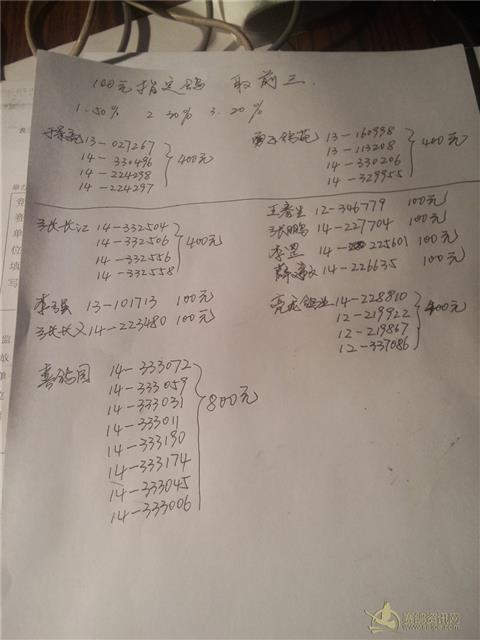 100元指定鸽 取前三.
1. 50% 2 30% 3. 20%
13-027267
14-330496
14-224298
14-224297
400元
鸽苑 13-160998
13-113208
14-330206
14-329955
400元
张长江 14-332504
14-332506
14-332556
14-332558
400元
王 12-346779 100元
张鹏 14-227704 100元
李罡 14-225601 100元
薛 14-226635 100元
李 13-101713 100元
张长义 14-223480 100元
14-228810
12-219922
12-219867
12-337086
400元
14-333072
14-333059
14-333031
14-333011
14-333190
14-333174
14-333045
14-333006
800元
竞赛单位填写
监放单
赛鸽资讯网